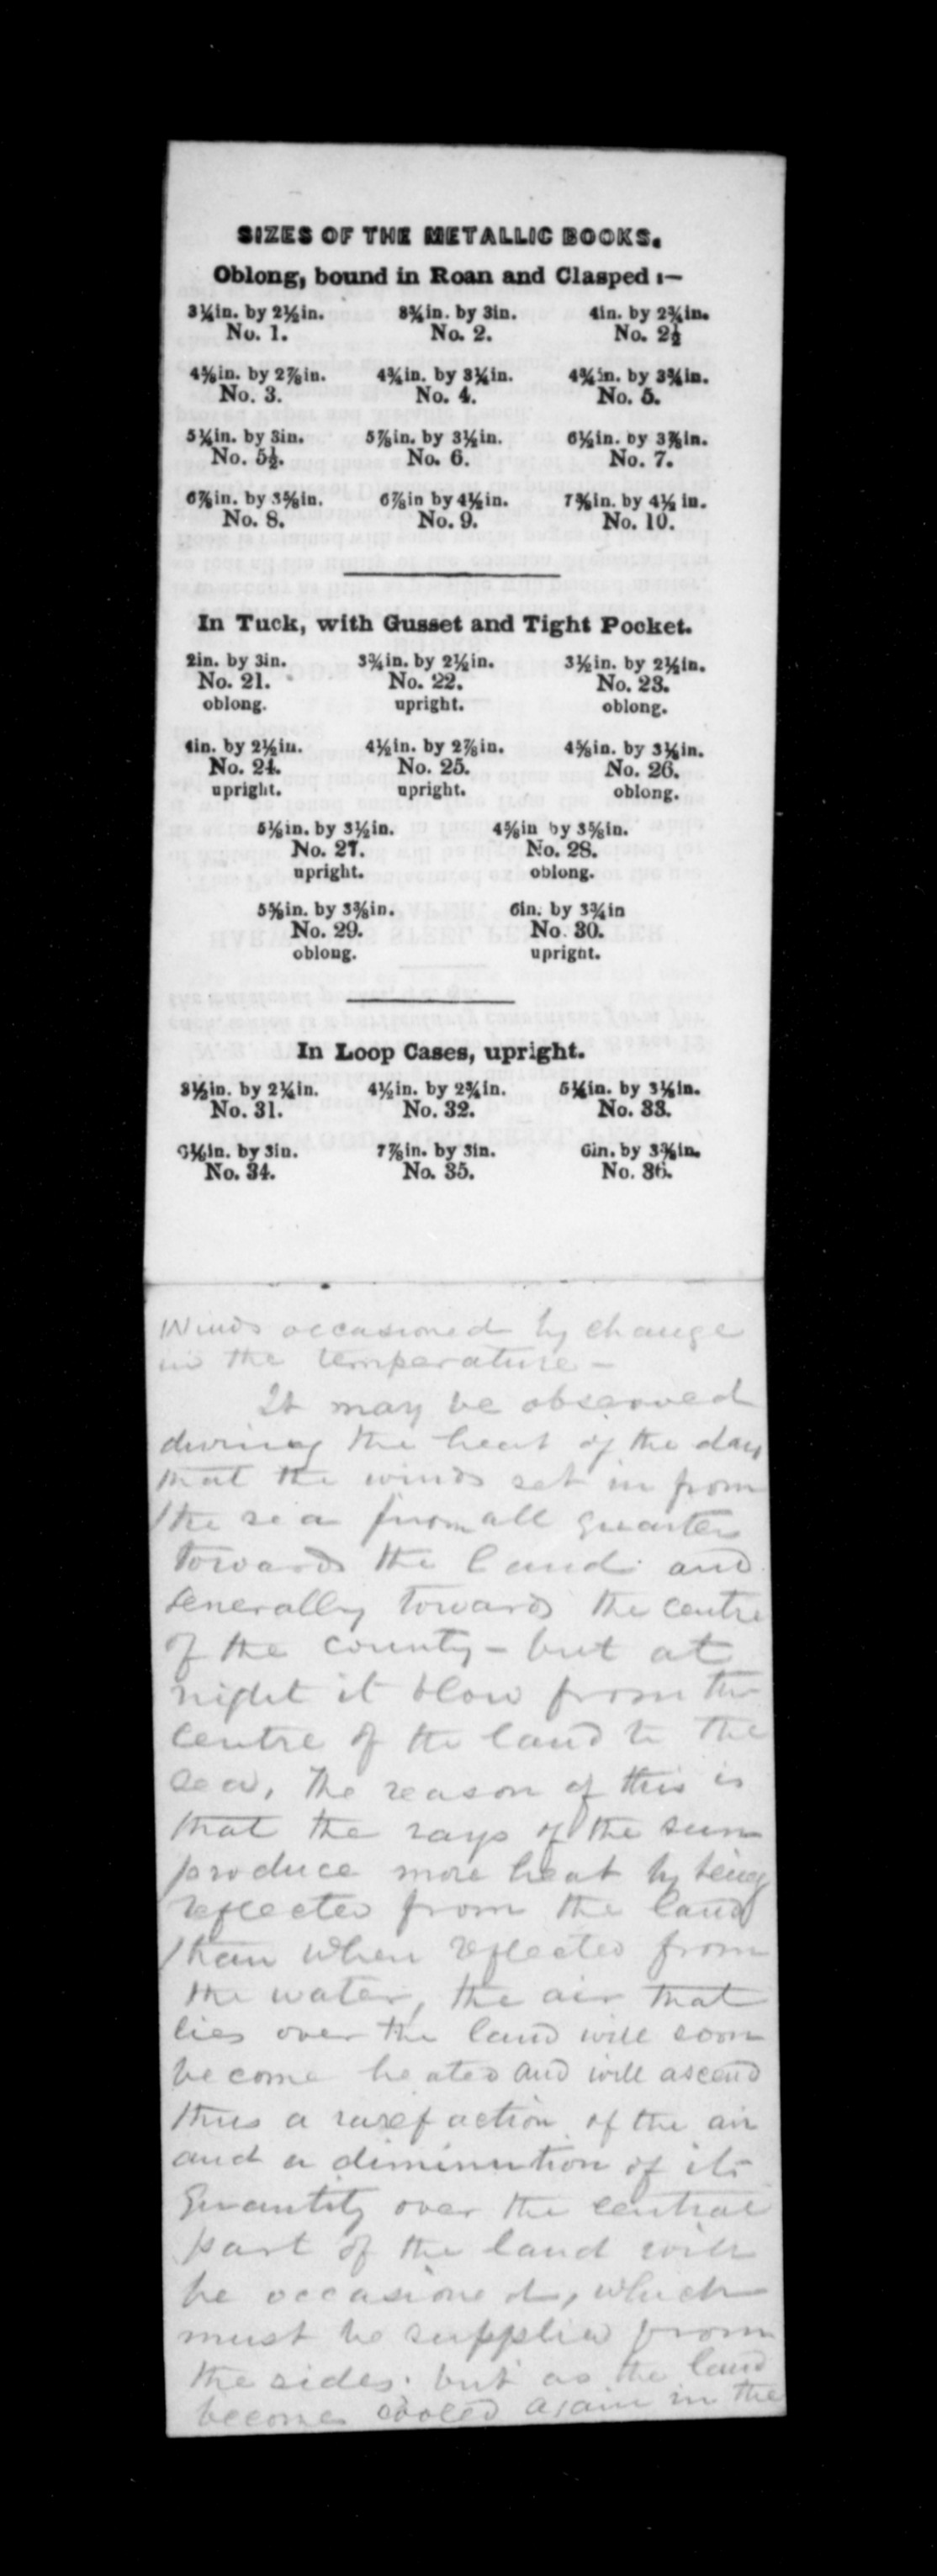 SIZES OF THE METALLIC BOOKS.
Oblong, bound in Roan and Clasped :—
3¼in. by 2½in. 3¾in. by 3in. 4in. by 2¾in.
No. 1. No. 2. No. 2½
4⅝in. by 2⅞in. 4¾in. by 3¼in. 4¾in. by 3¾in.
No. 3. No. 4. No. 5.
5¼in. by 3in. 5⅞in. by 3½in. 6½in. by 3⅞in.
No. 5½. No. 6. No. 7.
6⅞in. by 3⅝in. 6⅞in by 4½in. 7⅝in. by 4½ in.
No. 8. No. 9. No. 10.
In Tuck, with Gusset and Tight Pocket.
2in. by 3in. 3¾in. by 2½in. 3½in. by 2½in.
No. 21. No. 22. No. 23.
oblong. upright. oblong.
4in. by 2½in. 4½in. by 2⅞in. 4⅝in. by 3½in.
No. 24. No. 25. No. 26.
upright. upright. oblong.
5⅛in. by 3½in. 4⅝in by 3⅝in.
No. 27. No. 28.
upright. oblong.
5⅝in. by 3⅜in. 6in. by 3¾in
No. 29. No. 30.
oblong. upright.
In Loop Cases, upright.
3½in. by 2¼in. 4½in. by 2¾in. 5¼in. by 3¼in.
No. 31. No. 32. No. 33.
6½in. by 3in. 7⅞in. by 3in. 6in. by 3⅜in.
No. 34. No. 35. No. 36.
Winds occasioned by change
in the temperature –
It may be observed
during the heat of the day
that the winds set in from
the sea from all quarters
towards the land and
Generally towards the centre
of the county – but at
night it blow from the
centre of the land to the
sea, The reason of this is
that the rays of the sun
produce more heat by being
reflected from the land
than when reflected from
the water, the air that
lies over the land will soon
become heated and will ascend
thus a rarefaction of the air
and a diminution of its
Quantity over the central
part of the land will
be occasioned, which
must be supplied from
the sides. but as the land
becomes cooled again in the